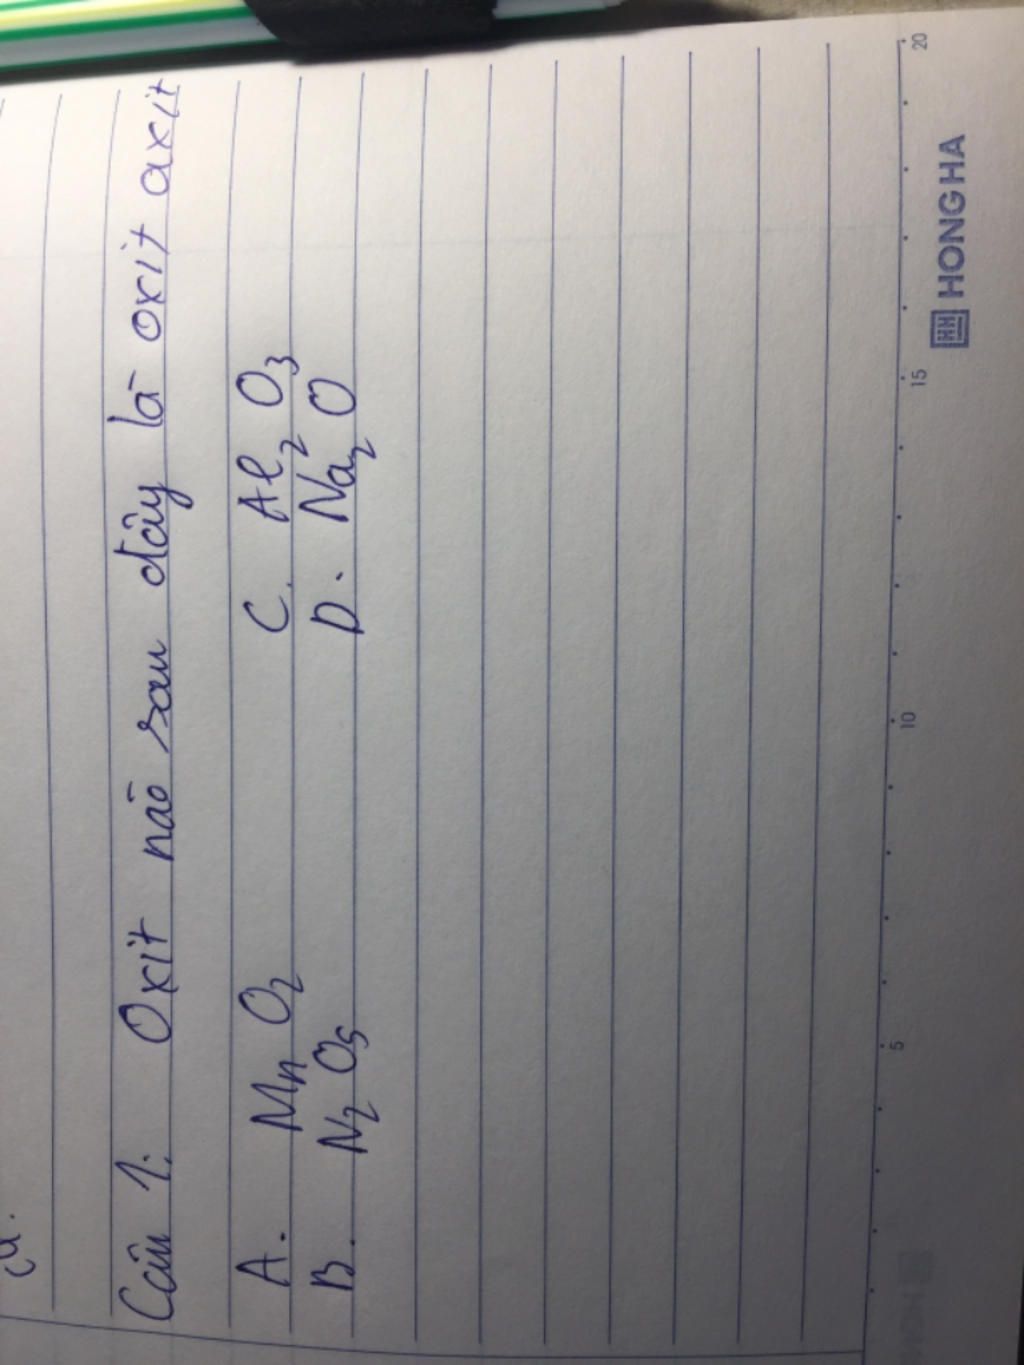 cu.
Câu 1: Oxit nào sau đây là oxit axit
A. MnO₂ C. Al₂O₃
B. N₂O₅ D. Na₂O
5 10 15 20
HONG HA